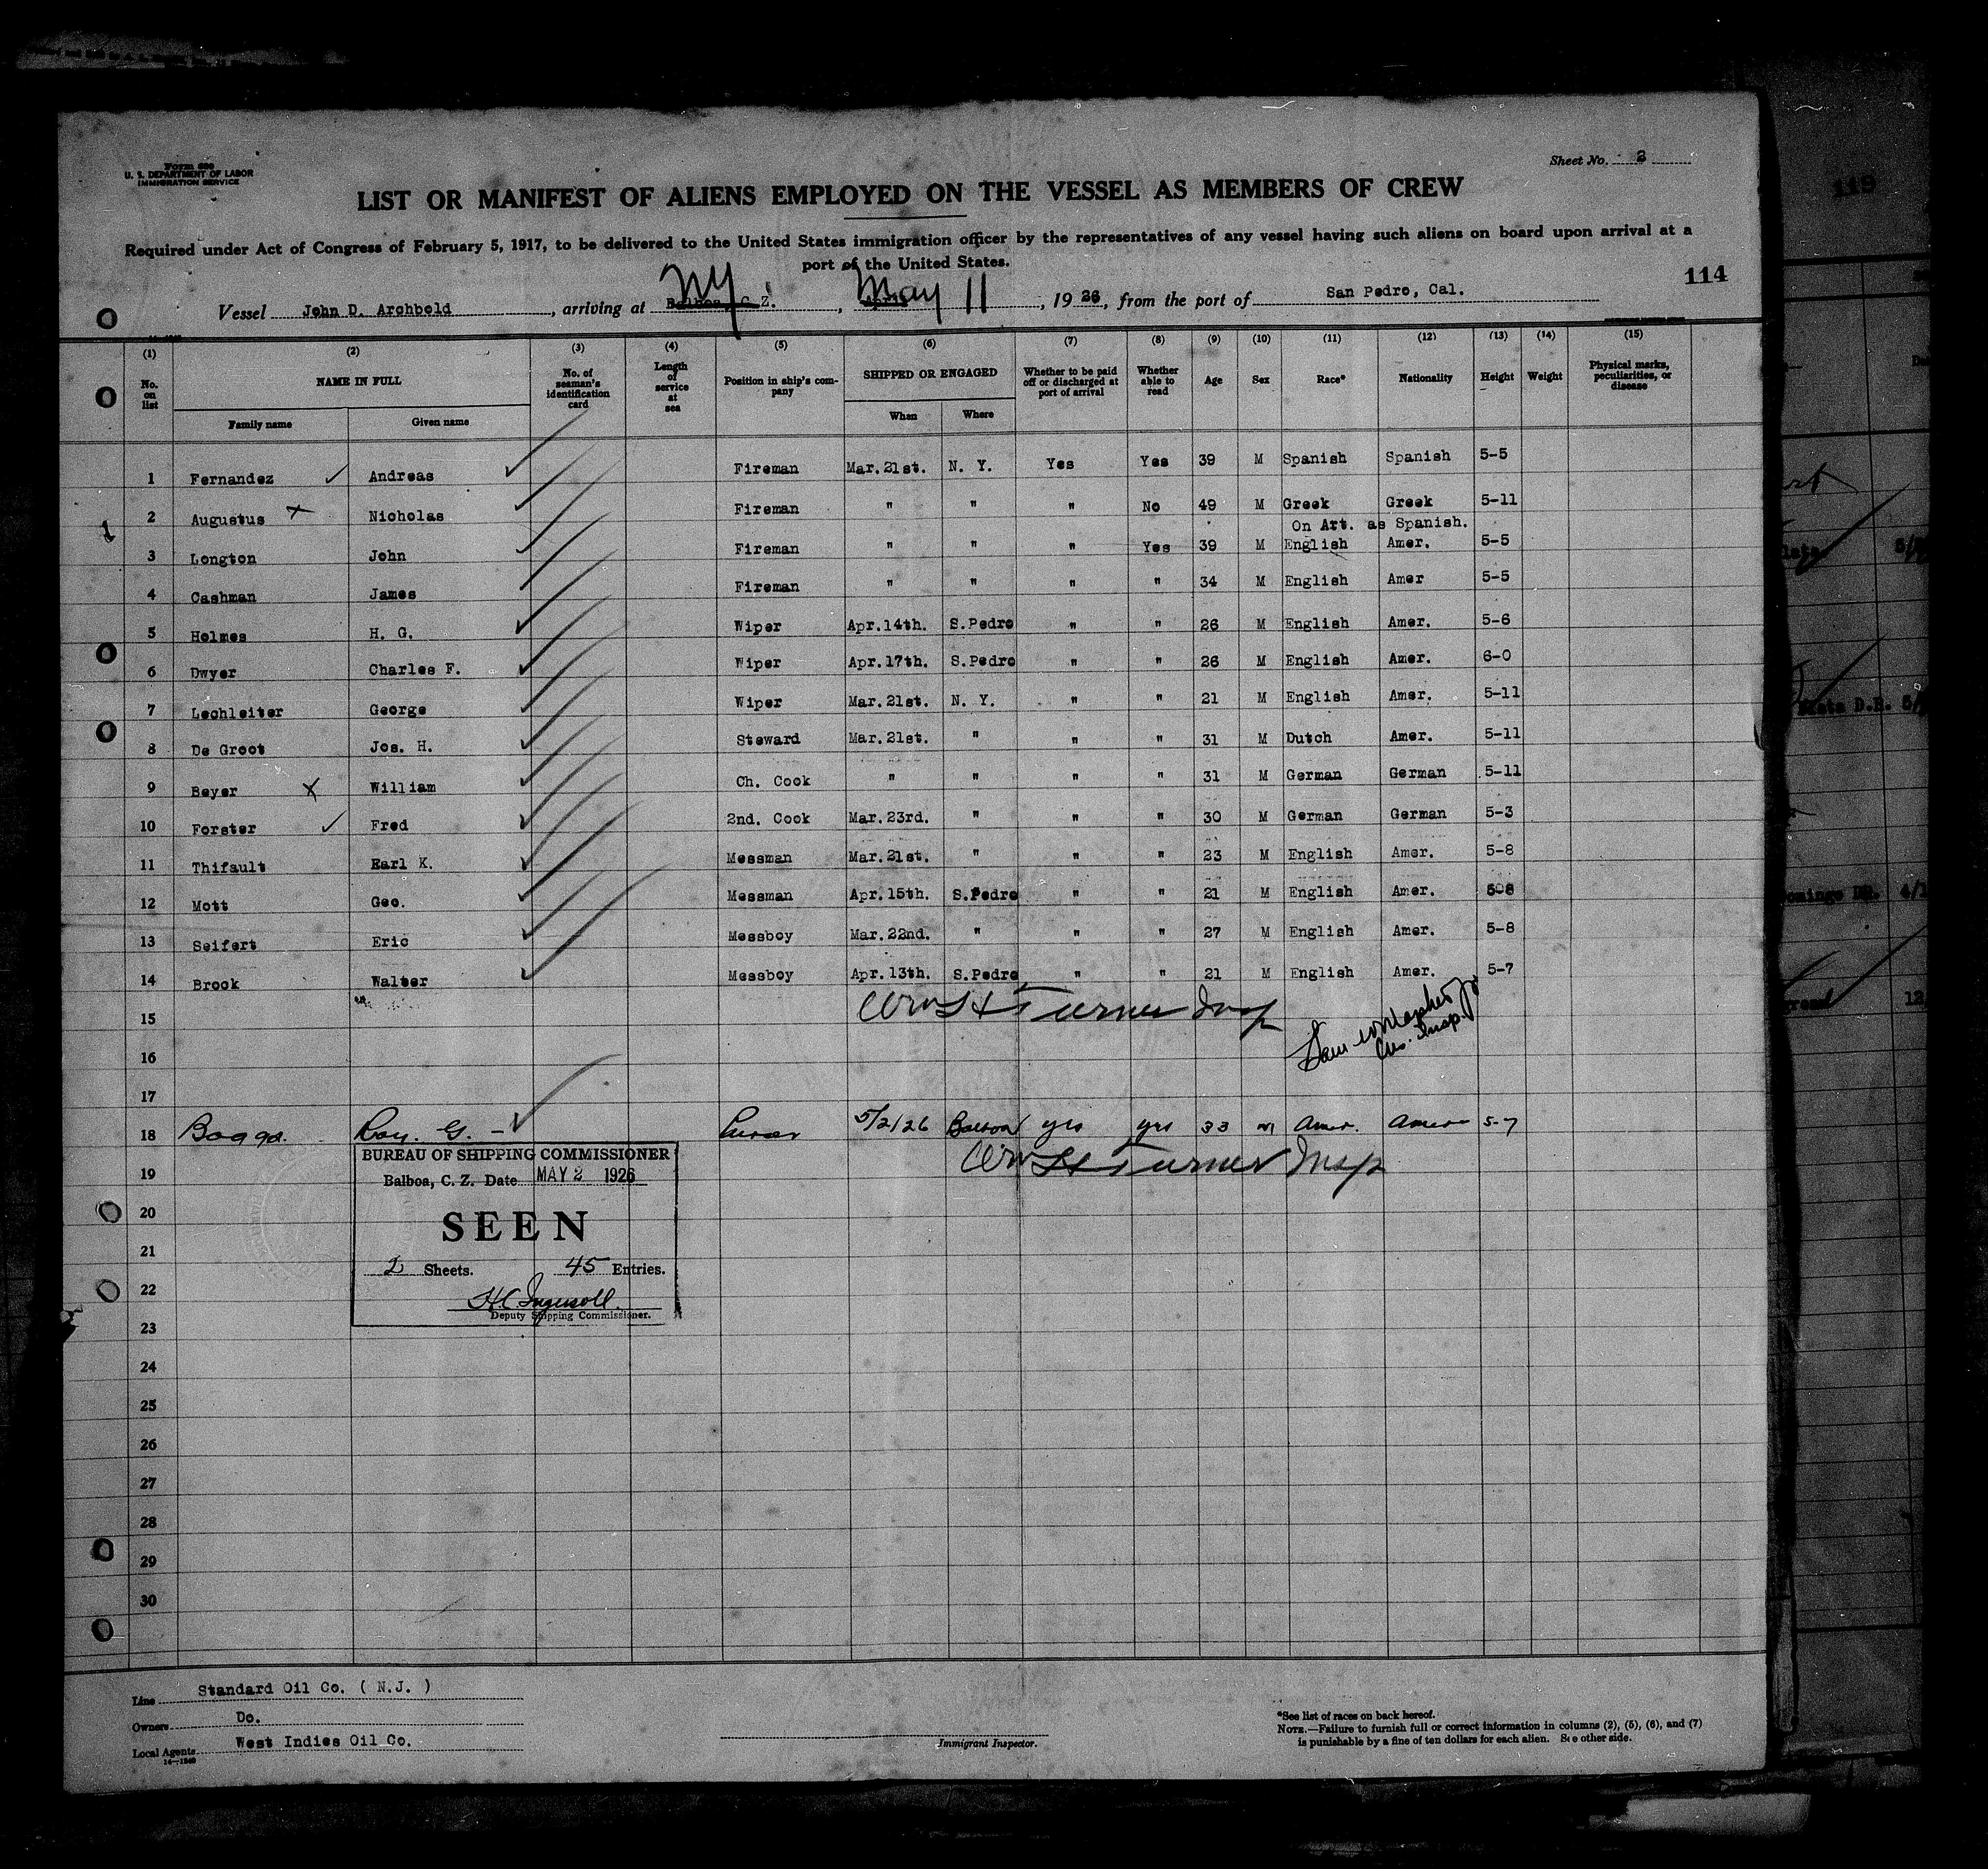 Form 680
U. S. DEPARTMENT OF LABOR
IMMIGRATION SERVICE
Sheet No. 2
LIST OR MANIFEST OF ALIENS EMPLOYED ON THE VESSEL AS MEMBERS OF CREW
Required under Act of Congress of February 5, 1917, to be delivered to the United States immigration officer by the representatives of any vessel having such aliens on board upon arrival at a
port of the United States.
114
Vessel John D. Archbold, arriving at Balboa, C. Z. NY, April May 11, 1926, from the port of San Pedro, Cal.
(1) (2) (3) (4) (5) (6) (7) (8) (9) (10) (11) (12) (13) (14) (15)
No. on list NAME IN FULL No. of seaman's identification card Length of service at sea Position in ship's company SHIPPED OR ENGAGED Whether to be paid off or discharged at port of arrival Whether able to read Age Sex Race* Nationality Height Weight Physical marks, peculiarities, or disease
Family name Given name When Where
1 Fernandez Andreas Fireman Mar. 21st. N. Y. Yes Yes 39 M Spanish Spanish 5-5
2 Augustus Nicholas Fireman " " " No 49 M Greek Greek 5-11
On Art. as Spanish.
3 Longton John Fireman " " " Yes 39 M English Amer. 5-5
4 Cashman James Fireman " " " " 34 M English Amer 5-5
5 Holmes H. G. Wiper Apr. 14th. S.Pedro " " 26 M English Amer. 5-6
6 Dwyer Charles F. Wiper Apr. 17th. S.Pedro " " 26 M English Amer. 6-0
7 Lechleiter George Wiper Mar. 21st. N. Y. " " 21 M English Amer. 5-11
8 De Groot Jos. H. Steward Mar. 21st. " " " 31 M Dutch Amer. 5-11
9 Beyer William Ch. Cook " " " " 31 M German German 5-11
10 Forster Fred 2nd. Cook Mar. 23rd. " " " 30 M German German 5-3
11 Thifault Earl K. Messman Mar. 21st. " " " 23 M English Amer. 5-8
12 Mott Geo. Messman Apr. 15th. S.Pedro " " 21 M English Amer. 5-8
13 Seifert Eric Messboy Mar. 22nd. " " " 27 M English Amer. 5-8
14 Brook Walter Messboy Apr. 13th. S.Pedro " " 21 M English Amer. 5-7
Wm H Turner Insp
15
16
17
18 Boggs. Ray. G. - Purser 5/2/26 Balboa yes yes 33 m Amer. Amer 5-7
Wm H Turner Insp
19
20
21
22
23
24
25
26
27
28
29
30
BUREAU OF SHIPPING COMMISSIONER
Balboa, C. Z. Date MAY 2 1926
SEEN
2 Sheets. 45 Entries.
H C Ingersoll.
Deputy Shipping Commissioner.
Line Standard Oil Co. ( N.J. )
Owners Do.
Local Agents West Indies Oil Co.
Immigrant Inspector.
*See list of races on back hereof.
NOTE.—Failure to furnish full or correct information in columns (2), (5), (6), and (7)
is punishable by a fine of ten dollars for each alien. See other side.
119